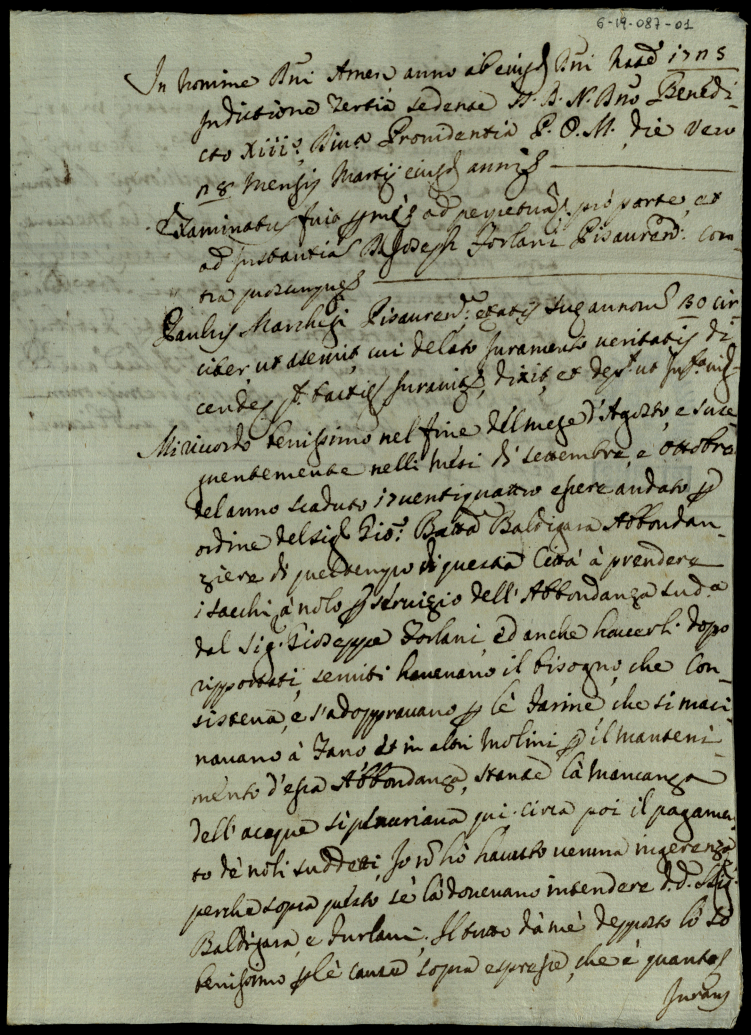 6-19-087-01
In nomine Dni Amen anno ab eiusd Dni Natē 1725
Indictione Tertia sedente S. D. N. Dno Benedi-
cto XIII.o Divā Providentiā P. O. M. die vero
28 Mensis Martij eiusd anni
Examinatus fuit p me ad perpetuam pro parte, et
ad Instantiā D. Joseph Forlani Pisauren. con
tra quoscunque
Paulus Marchigi Pisauren. etatis sue annorū 30 cir-
citer, ut asseruit, cui delato Juramento veritatis di
cende, tactis Juravit, dixit, et
Mi ricordo benissimo nel fine del mese d'Agosto, e susse
guentemente nelli mesi di settembre, e Ottobre
del anno scaduto 17ventiquattro essere andato p
ordine del sig Gio. Batta Baldigara Abbondan-
ziere di quel tempo di questa Città à prendere
i sacchi à nolo p servizio dell'Abbondanza sud.a
dal Sig. Gioseppe Forlani, ed anche haverli dopo
ripportati, serviti havevano il bisogno, che Con-
sisteva, e s'adopravano p le Farine, che si maci
navano à Fano et in altri Molini p il manteni-
mento d'essa Abbondanza, stante la mancanza
dell'acque si penuriava qui. circa poi il pagamen
to de noli suddetti Io nō hò havuto veruna ingerenza
perche sopra questo se la dovevano intendere d.d. SSig
Baldigara, e Furlani. Il tutto da me depposto lo sò
benissimo p le cause sopra espresse, che è quanto
Jurans